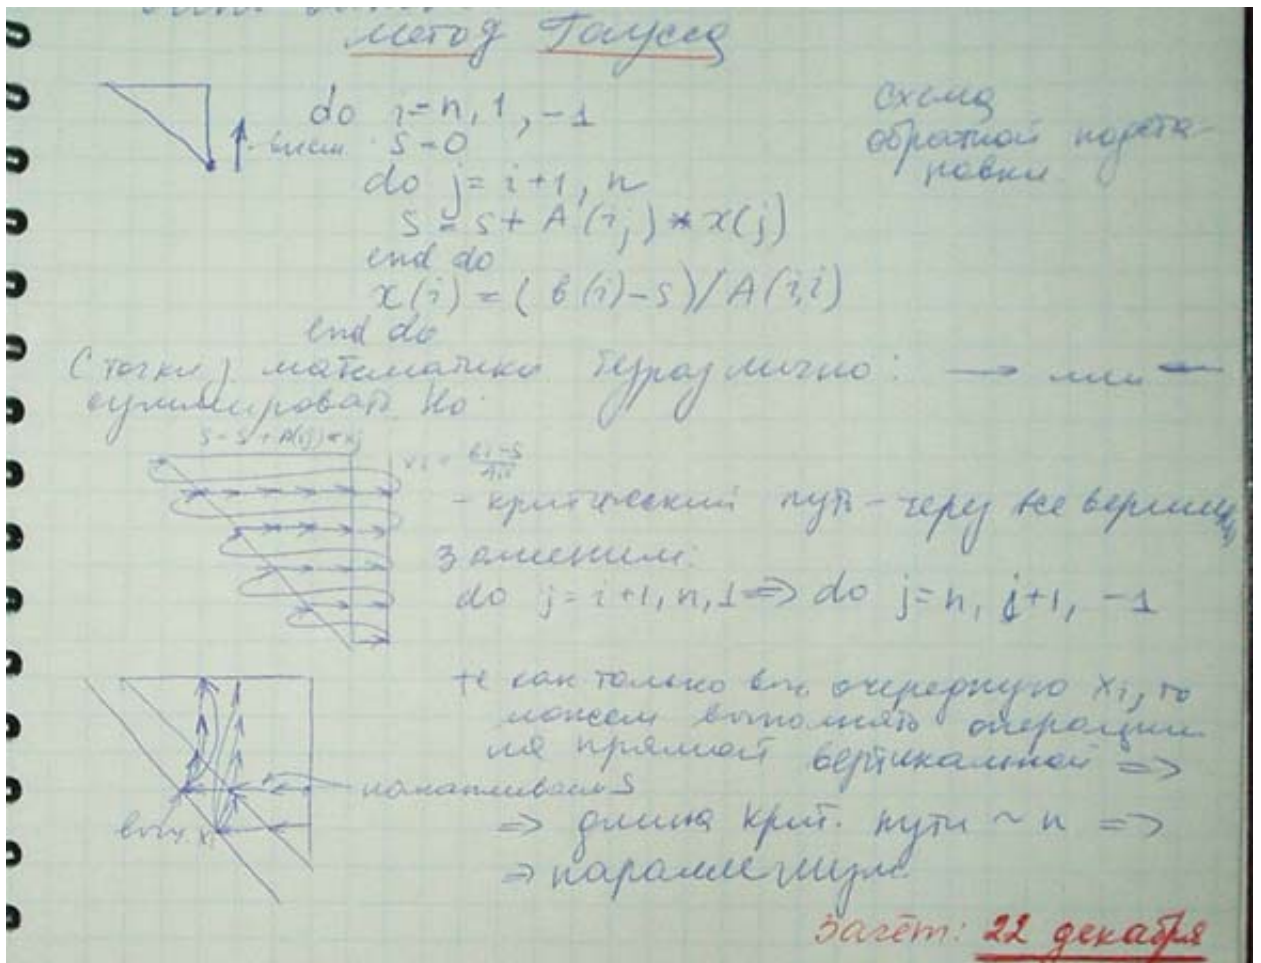 метод Гаусса
do i=n, 1, -1
схема
S=0
обратной подста-
новки
do j=i+1, n
S=S+A(ij)*x(j)
end do
x(i)=(b(i)-S)/A(i,i)
end do
С точки з. математики безразлично: → или ←
суммировать. Но
S=S+A(ij)*xj
xi = bi-S / Aii
- критический путь - через все вершины
заменим:
do j=i+1, n, 1 => do j=n, j+1, -1
те как только выч. очередную xi, то
можем выполнять операции
на прямой вертикальной =>
накапливаем S
выч. xi
=> длина крит. пути ~ n =>
=> параллелизм
Зачёт: 22 декабря